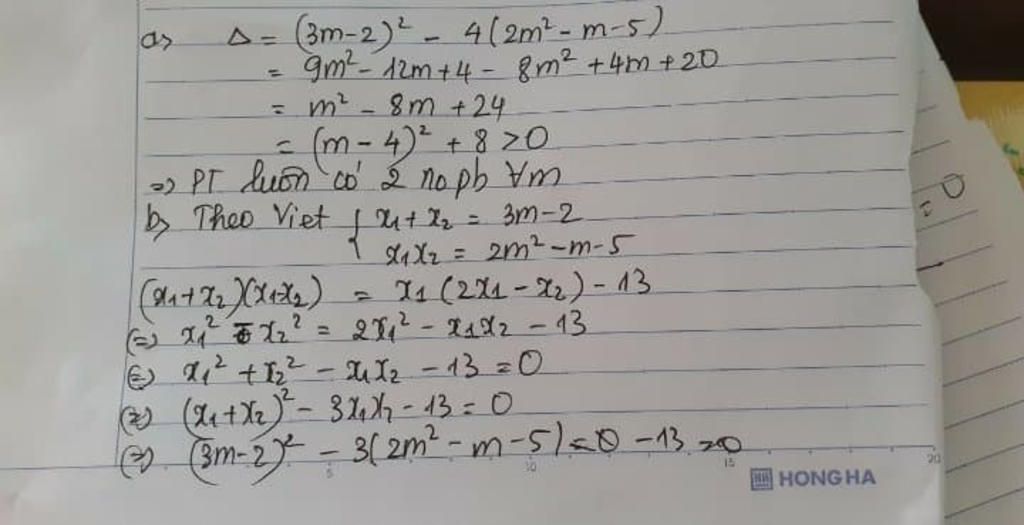 a> Δ = (3m-2)² - 4(2m² - m-5)
= 9m² - 12m+4 - 8m² +4m +20
= m² - 8m + 24
= (m - 4)² + 8 >0
=> PT luôn có 2 nopb ∀m
b> Theo Viet { x1 + x2 = 3m-2
x1x2 = 2m² -m-5
(x1+x2)(x1-x2) = x1 (2x1 - x2) - 13
(=) x1² - x2² = 2x1² - x1x2 - 13
(=) x1² + x2² - x1x2 - 13 =0
(=) (x1+x2)² - 3x1x2 - 13 = 0
(=) (3m-2)² - 3(2m² - m -5) = 0 -13 =0
= 0
5 10 15 20
HONG HA